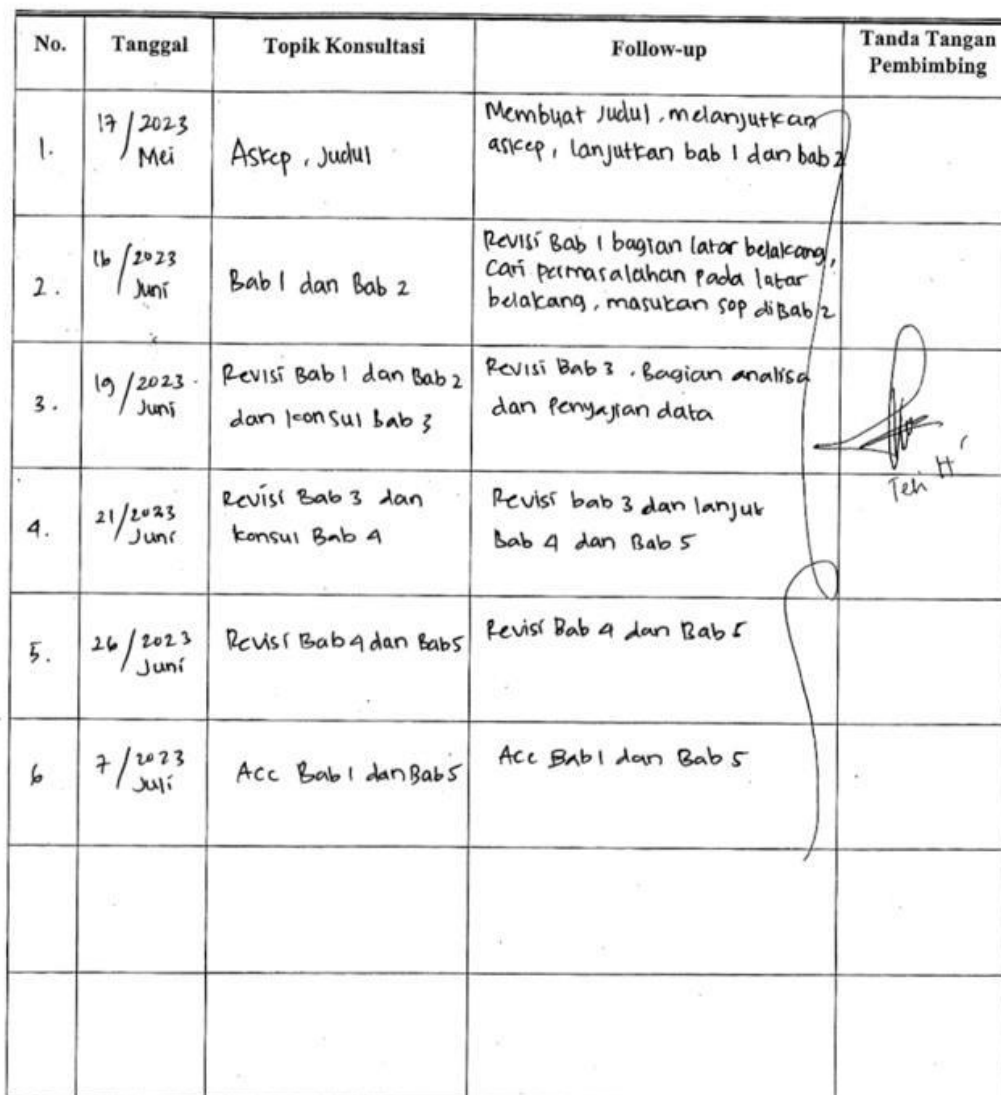 No. Tanggal Topik Konsultasi Follow-up Tanda Tangan
Pembimbing
1. 17/2023 Mei Askep, Judul Membuat Judul, melanjutkan
askep, lanjutkan bab 1 dan bab 2
2. 16/2023 Juni Bab 1 dan Bab 2 Revisi Bab 1 bagian latar belakang,
Cari permasalahan pada latar
belakang, masukan sop di Bab 2
3. 19/2023 Juni Revisi Bab 1 dan Bab 2
dan konsul Bab 3
Revisi Bab 3. Bagian analisa
dan Penyajian data
4. 21/2023 Juni Revisi Bab 3 dan
konsul Bab 4
Revisi bab 3 dan lanjut
Bab 4 dan Bab 5
5. 26/2023 Juni Revisi Bab 4 dan Bab 5 Revisi Bab 4 dan Bab 5
6 7/2023 Juli Acc Bab 1 dan Bab 5 Acc Bab 1 dan Bab 5